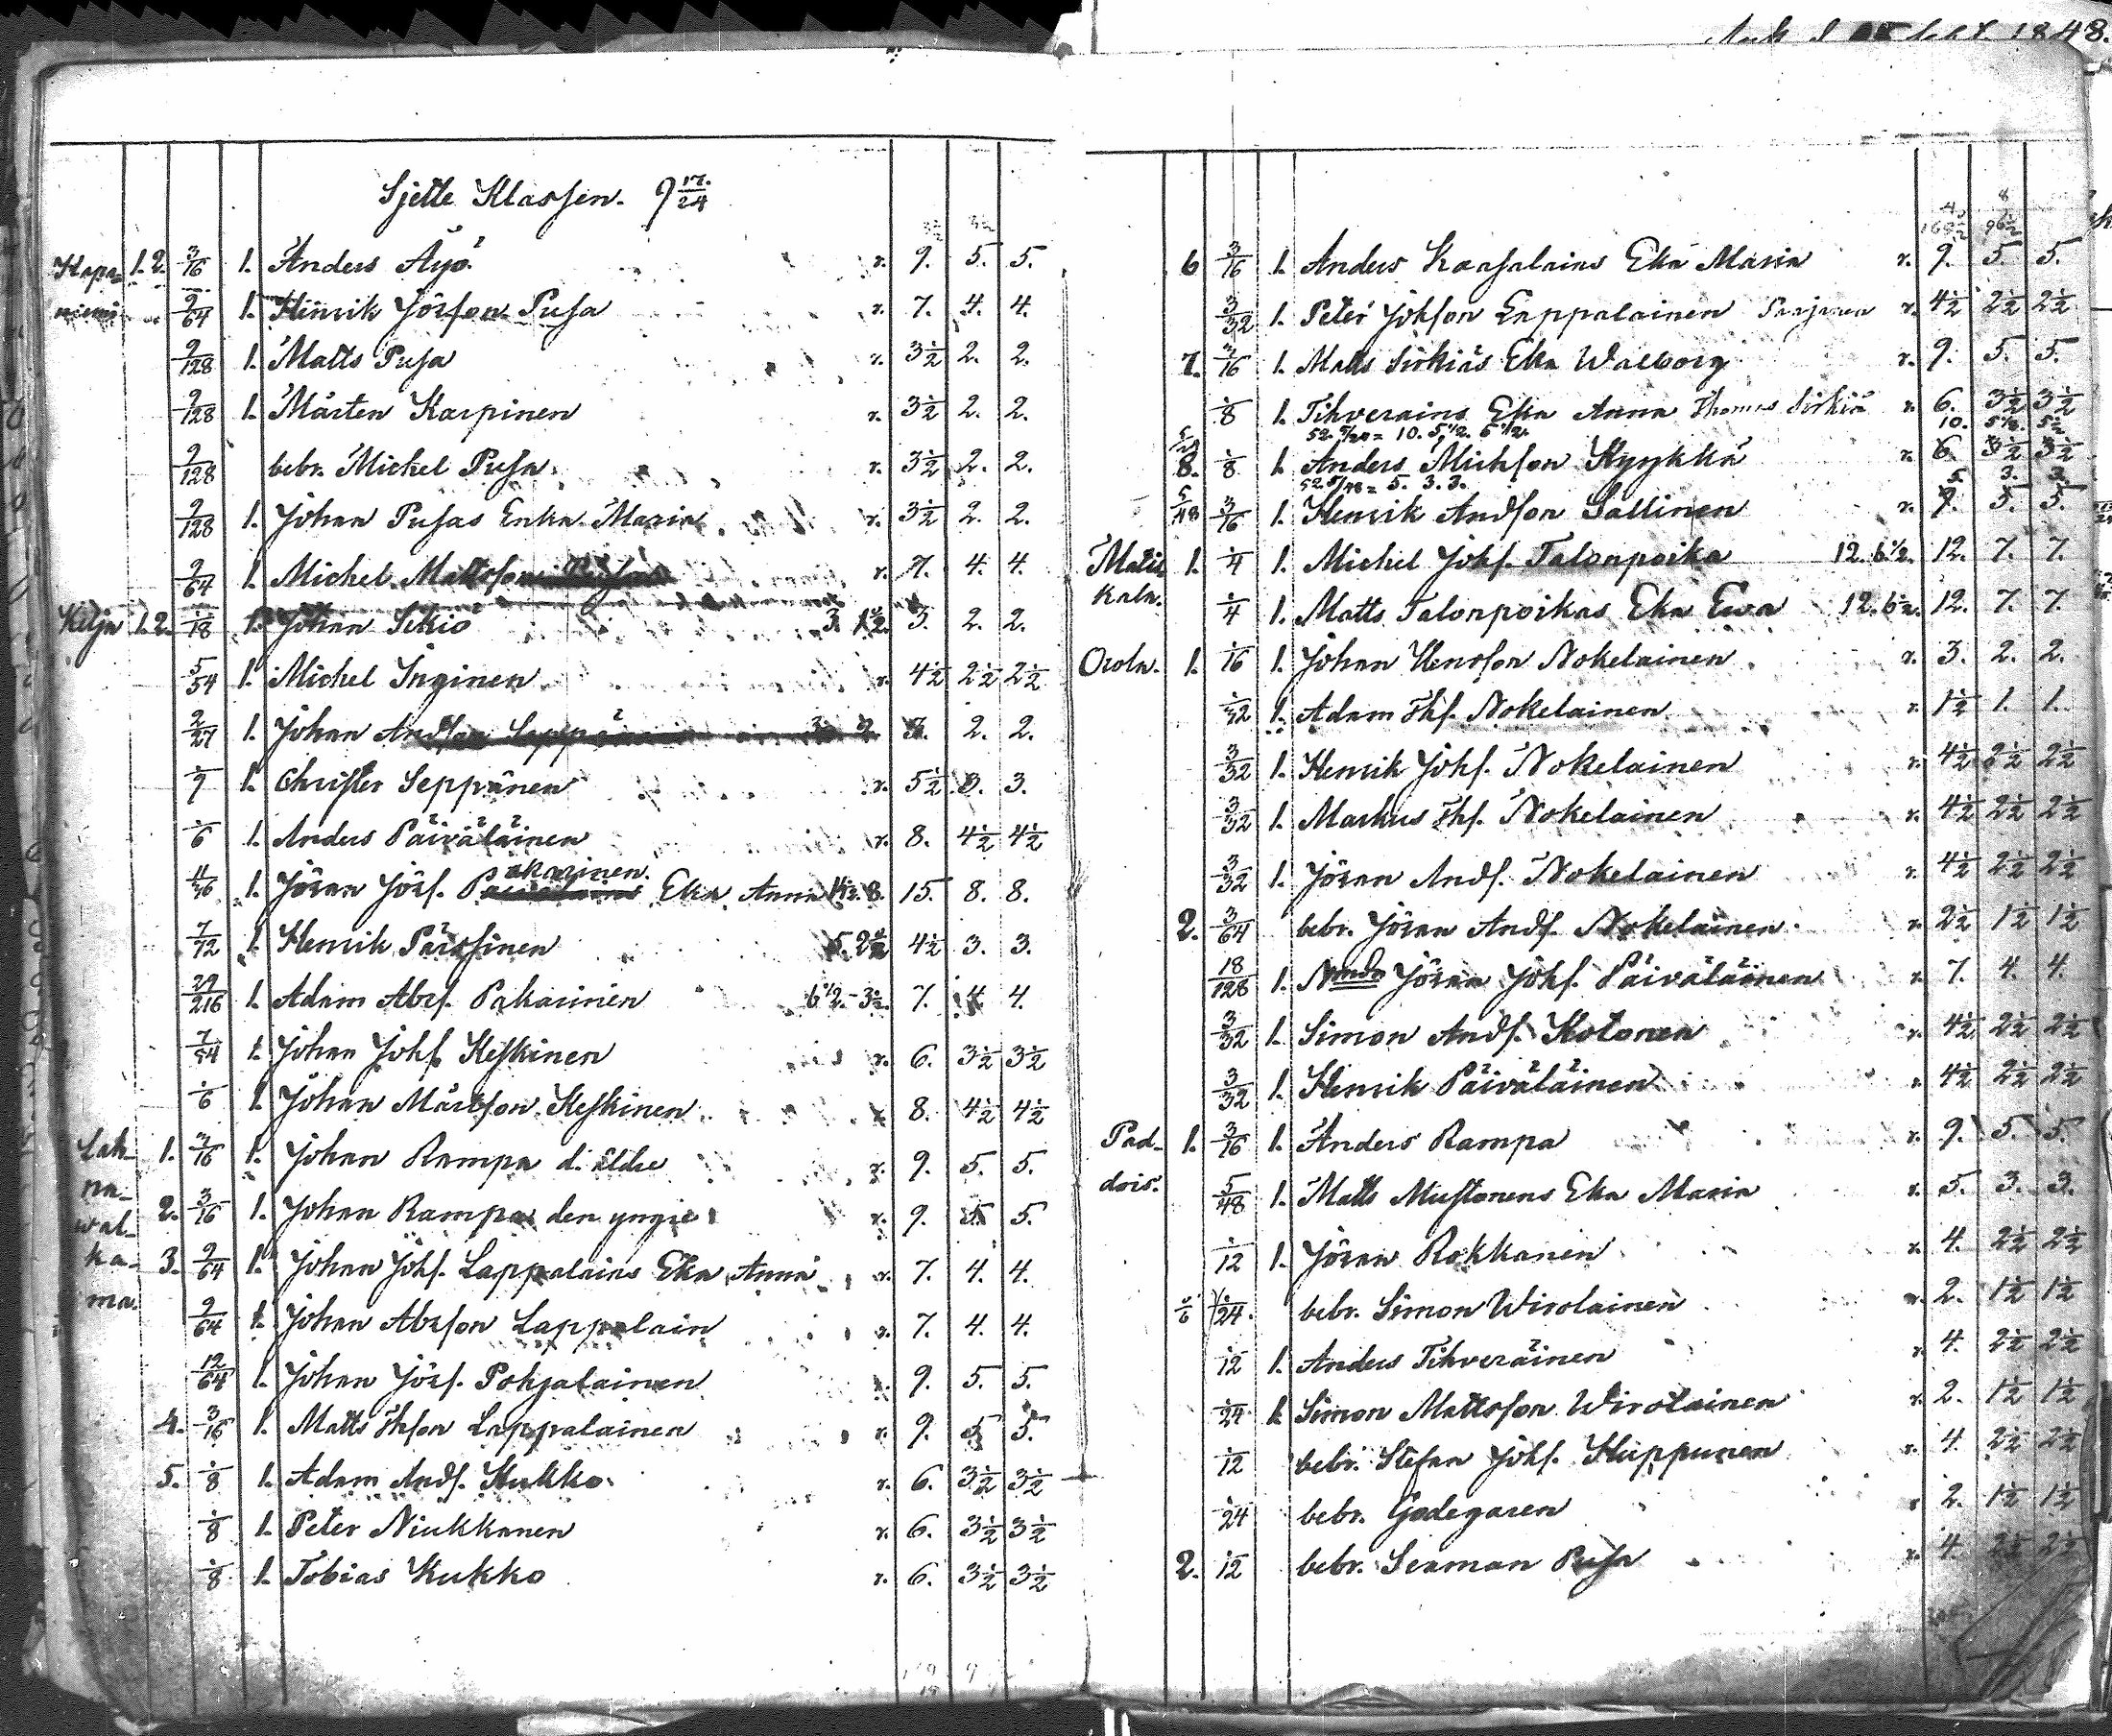 1848.
Sjette Klassen. 9 17/24
Kapa- 1. 2. 3/16 1. Anders Äyö r. 9. 5. 5.
niemi 9/64 1. Henrik Jörsson Pusa r. 7. 4. 4.
9/128 1. Matts Pusa r. 3½ 2. 2.
9/128 1. Mårten Karpinen r. 3½ 2. 2.
9/128 bebr. Michel Pusa r. 3½ 2. 2.
9/128 1. Johan Pusas Enka Maria r. 3½ 2. 2.
9/64 1. Michel Mattsson r. 7. 4. 4.
Kilja 1. 2. 1/18 1. Johan Sikiö 3. 1½. 3. 2. 2.
5/54 1. Michel Inginen r. 4½ 2½ 2½
2/27 1. Johan Andsson Seppänen 3. 2. 2.
1/9 1. Christer Seppänen r. 5½ 3. 3.
1/6 1. Anders Päiväläinen r. 8. 4½ 4½
11/36 1. Jöran Jörs. Pakarinen Eka Anna 14½. 8. 15. 8. 8.
7/72 1. Henrik Pärssinen 5. 2½ 4½ 3. 3.
29/216 1. Adam Abrs. Pakarinen 6½. 3½. 7. 4. 4.
7/54 1. Johan Johs. Keskinen r. 6. 3½ 3½
1/6 1. Johan Mårtson Keskinen r. 8. 4½ 4½
Lah- 1. 3/16 1. Johan Rampa d. äldre r. 9. 5. 5.
na-
wal- 2. 3/16 1. Johan Rampa den yngre r. 9. 5. 5.
ka- 3. 9/64 1. Johan Johs. Lappalains Eka Anna r. 7. 4. 4.
ma. 9/64 1. Johan Abrson Lappalain r. 7. 4. 4.
12/64 1. Johan Jörs. Pohjalainen r. 9. 5. 5.
4. 3/16 1. Matts Thsson Lappalainen r. 9. 5 5.
5. 1/8 1. Adam Ands. Kukko r. 6. 3½ 3½
1/8 1. Peter Niukkanen r. 6. 3½ 3½
1/8 1. Tobias Kukko r. 6. 3½ 3½
6 3/16 1. Anders Kaasalains Eka Maria r. 9. 5. 5.
3/32 1. Peter Johson Lappalainen r. 4½ 2½ 2½
7. 3/16 1. Matts Sirkiäs Eka Walborg r. 9. 5. 5.
1/8 1. Tihverains Eka Anna Thomas Sirkiä r. 6. 3½ 3½
52. 5/24 = 10. 5½. 5½. 10. 5½. 5½
8. 1/8 1. Anders Michson Kyykkä r. 6. 3½ 3½
52 5/48 = 5. 3. 3. 5. 3. 3.
5/48 3/16 1. Henrik Andson Sallinen r. 9. 5. 5.
Matis 1. 1/4 1. Michel Johs. Talonpoika 12. 6½. 12. 7. 7.
kala. 1/4 1. Matts Talonpoikas Eka Ewa 12. 6½. 12. 7. 7.
Orola. 1. 1/16 1. Johan Henrson Nokelainen r. 3. 2. 2.
1/32 1. Adam Ths. Nokelainen r. 1½ 1. 1.
3/32 1. Henrik Johs. Nokelainen r. 4½ 2½ 2½
3/32 1. Markus Ths. Nokelainen r. 4½ 2½ 2½
3/32 1. Jöran Ands. Nokelainen r. 4½ 2½ 2½
2. 3/64 bebr. Jöran Ands. Nokelainen r. 2½ 1½ 1½
18/128 1. Nmdn Jöran Johs. Päiväläinen r. 7. 4. 4.
3/32 1. Simon Ands. Kotonen r. 4½ 2½ 2½
3/32 1. Henrik Päiväläinen r. 4½ 2½ 2½
Pad- 1. 3/16 1. Anders Rampa r. 9. 5. 5.
dois. 5/48 1. Matts Mustonens Eka Maria r. 5. 3. 3.
1/12 1. Jöran Rokkanen r. 4. 2½ 2½
1/6 1/24 bebr. Simon Wirolainen r. 2. 1½ 1½
1/12 1. Anders Tihveräinen r. 4. 2½ 2½
1/24 1. Simon Mattsson Wirolainen r. 2. 1½ 1½
1/12 bebr. Stefan Johs. Huppunen r. 4. 2½ 2½
1/24 bebr. Godegaren r. 2. 1½ 1½
2. 1/12 bebr. Serman Pusa r. 4. 2½ 2½